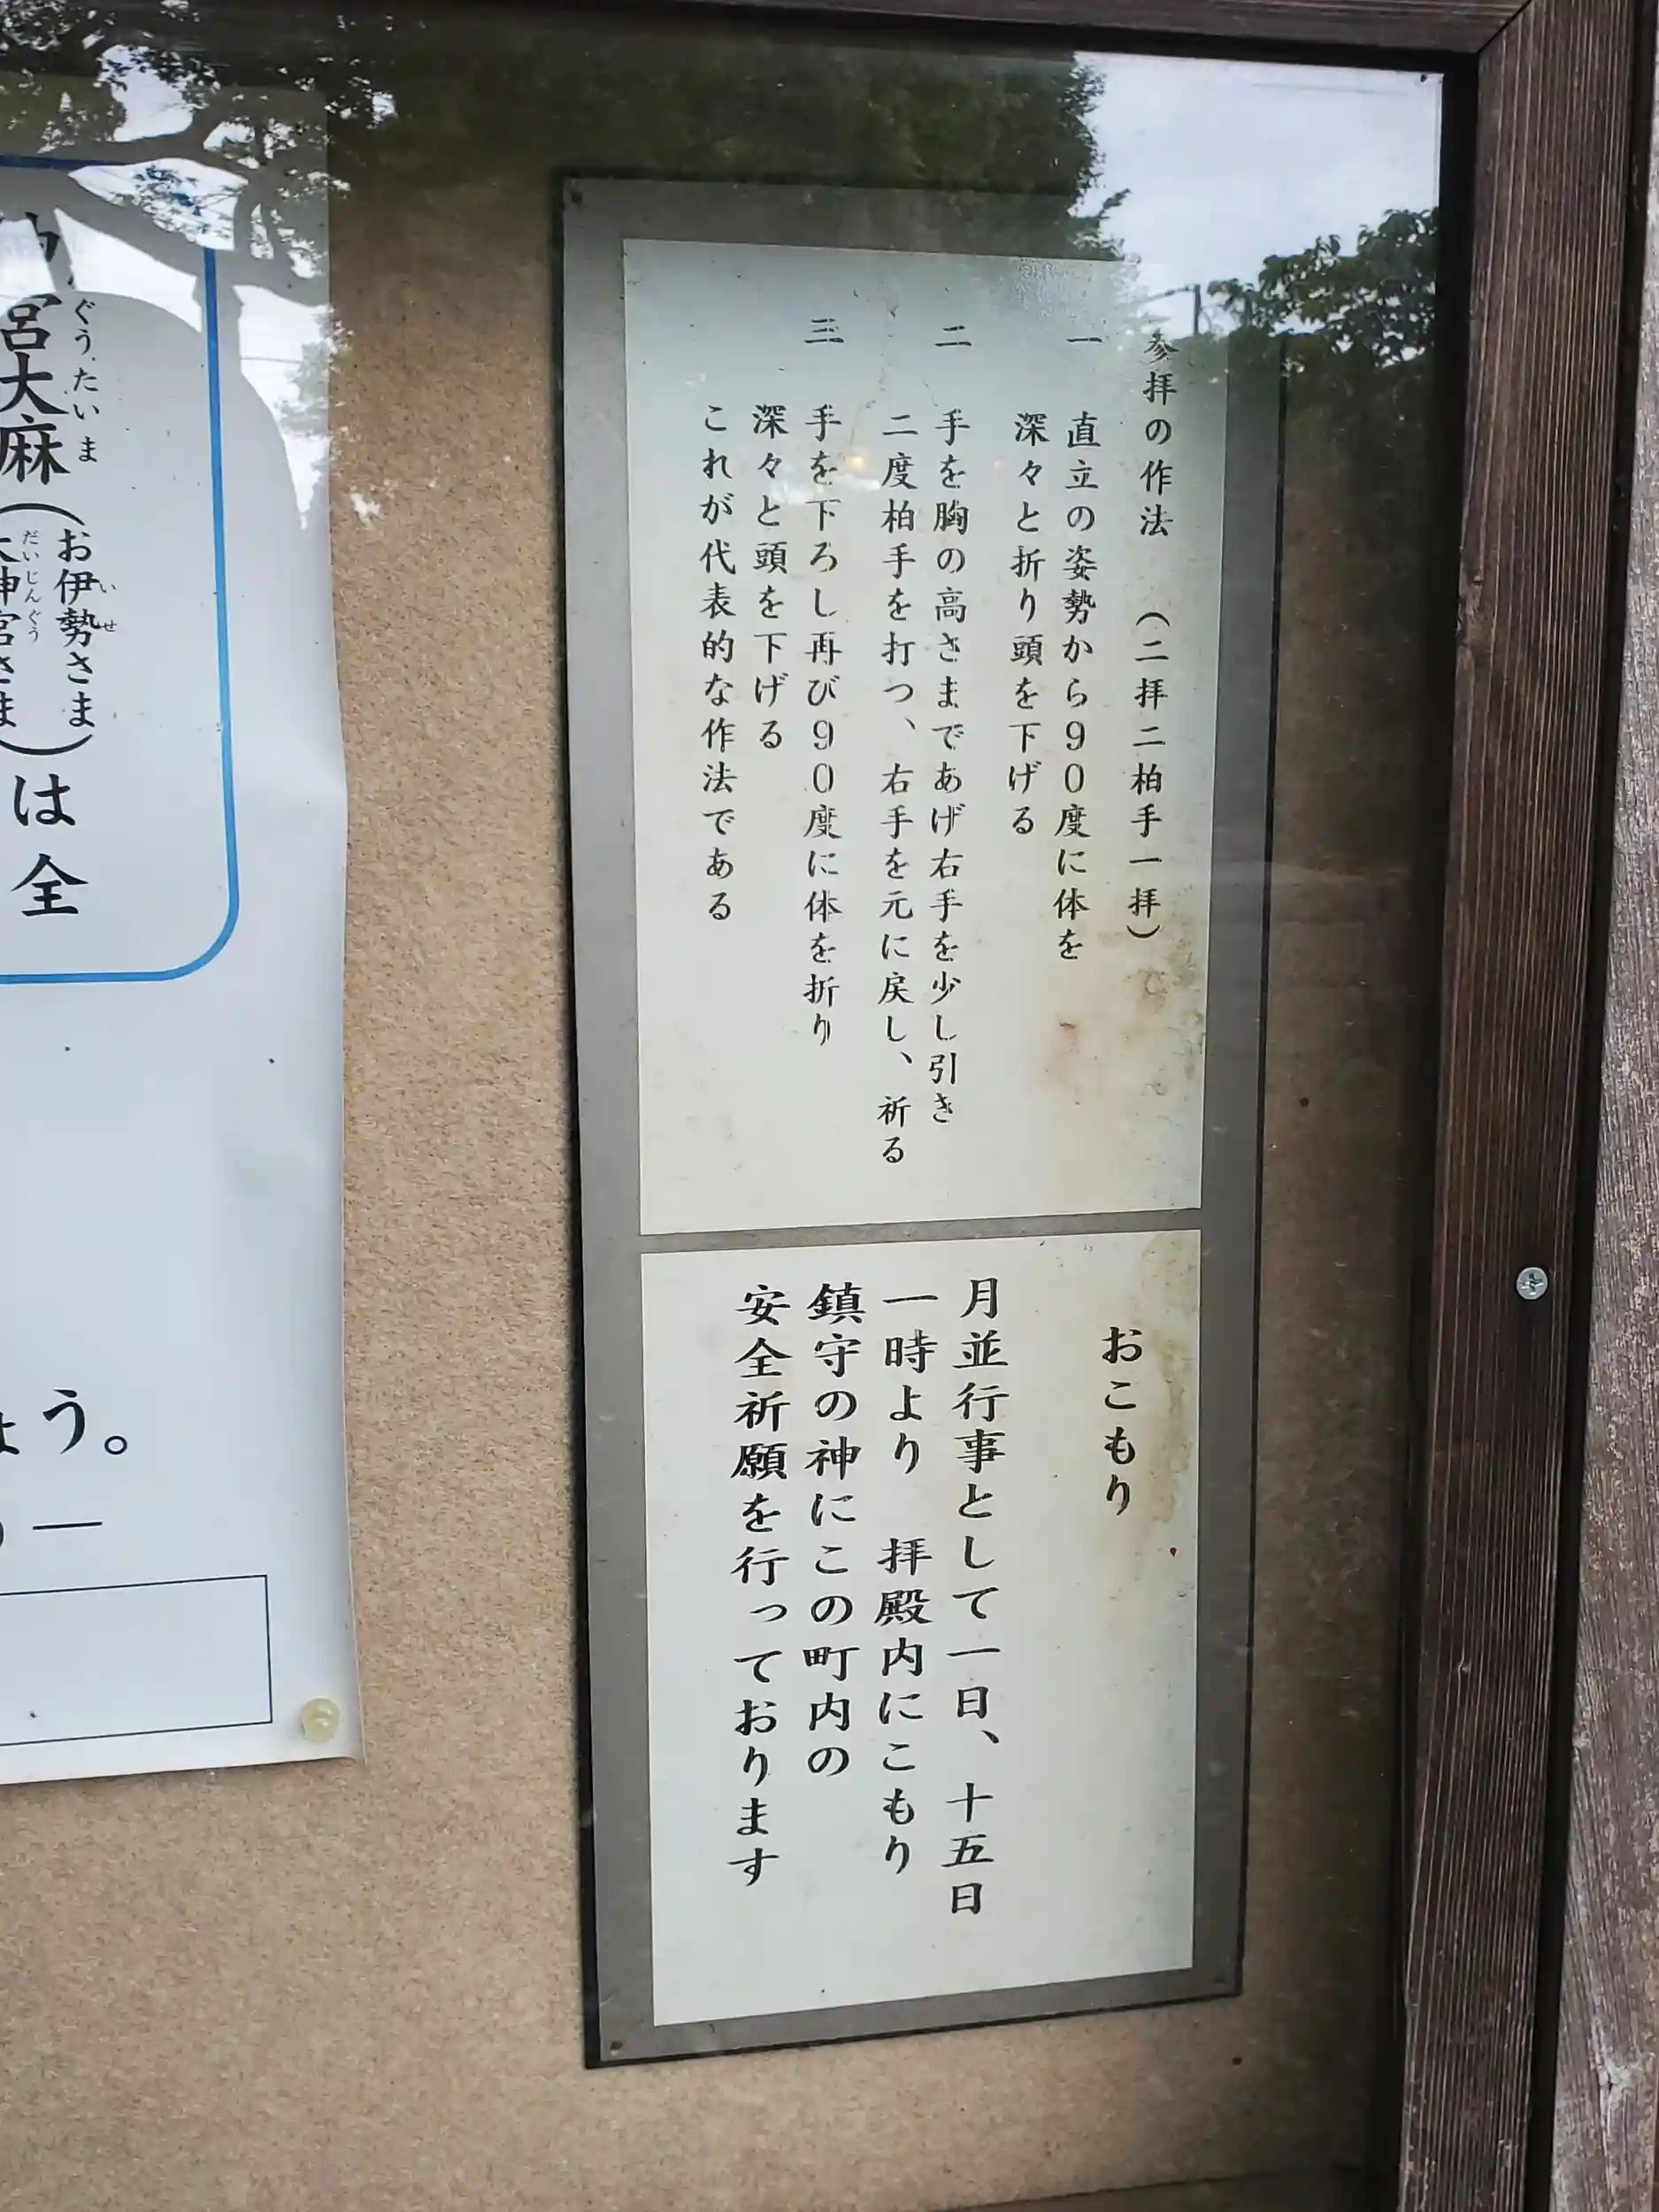 参拝の作法 （二拝二柏手一拝）
一 直立の姿勢から９０度に体を
深々と折り頭を下げる
二 手を胸の高さまであげ右手を少し引き
二度柏手を打つ、右手を元に戻し、祈る
三 手を下ろし再び９０度に体を折り
深々と頭を下げる
これが代表的な作法である
おこもり
月並行事として一日、十五日
一時より 拝殿内にこもり
鎮守の神にこの町内の
安全祈願を行っております
宮大麻（お伊勢さま
大神宮さま）は全
ぐうたいま
いせ
だいじんぐう
ょう。